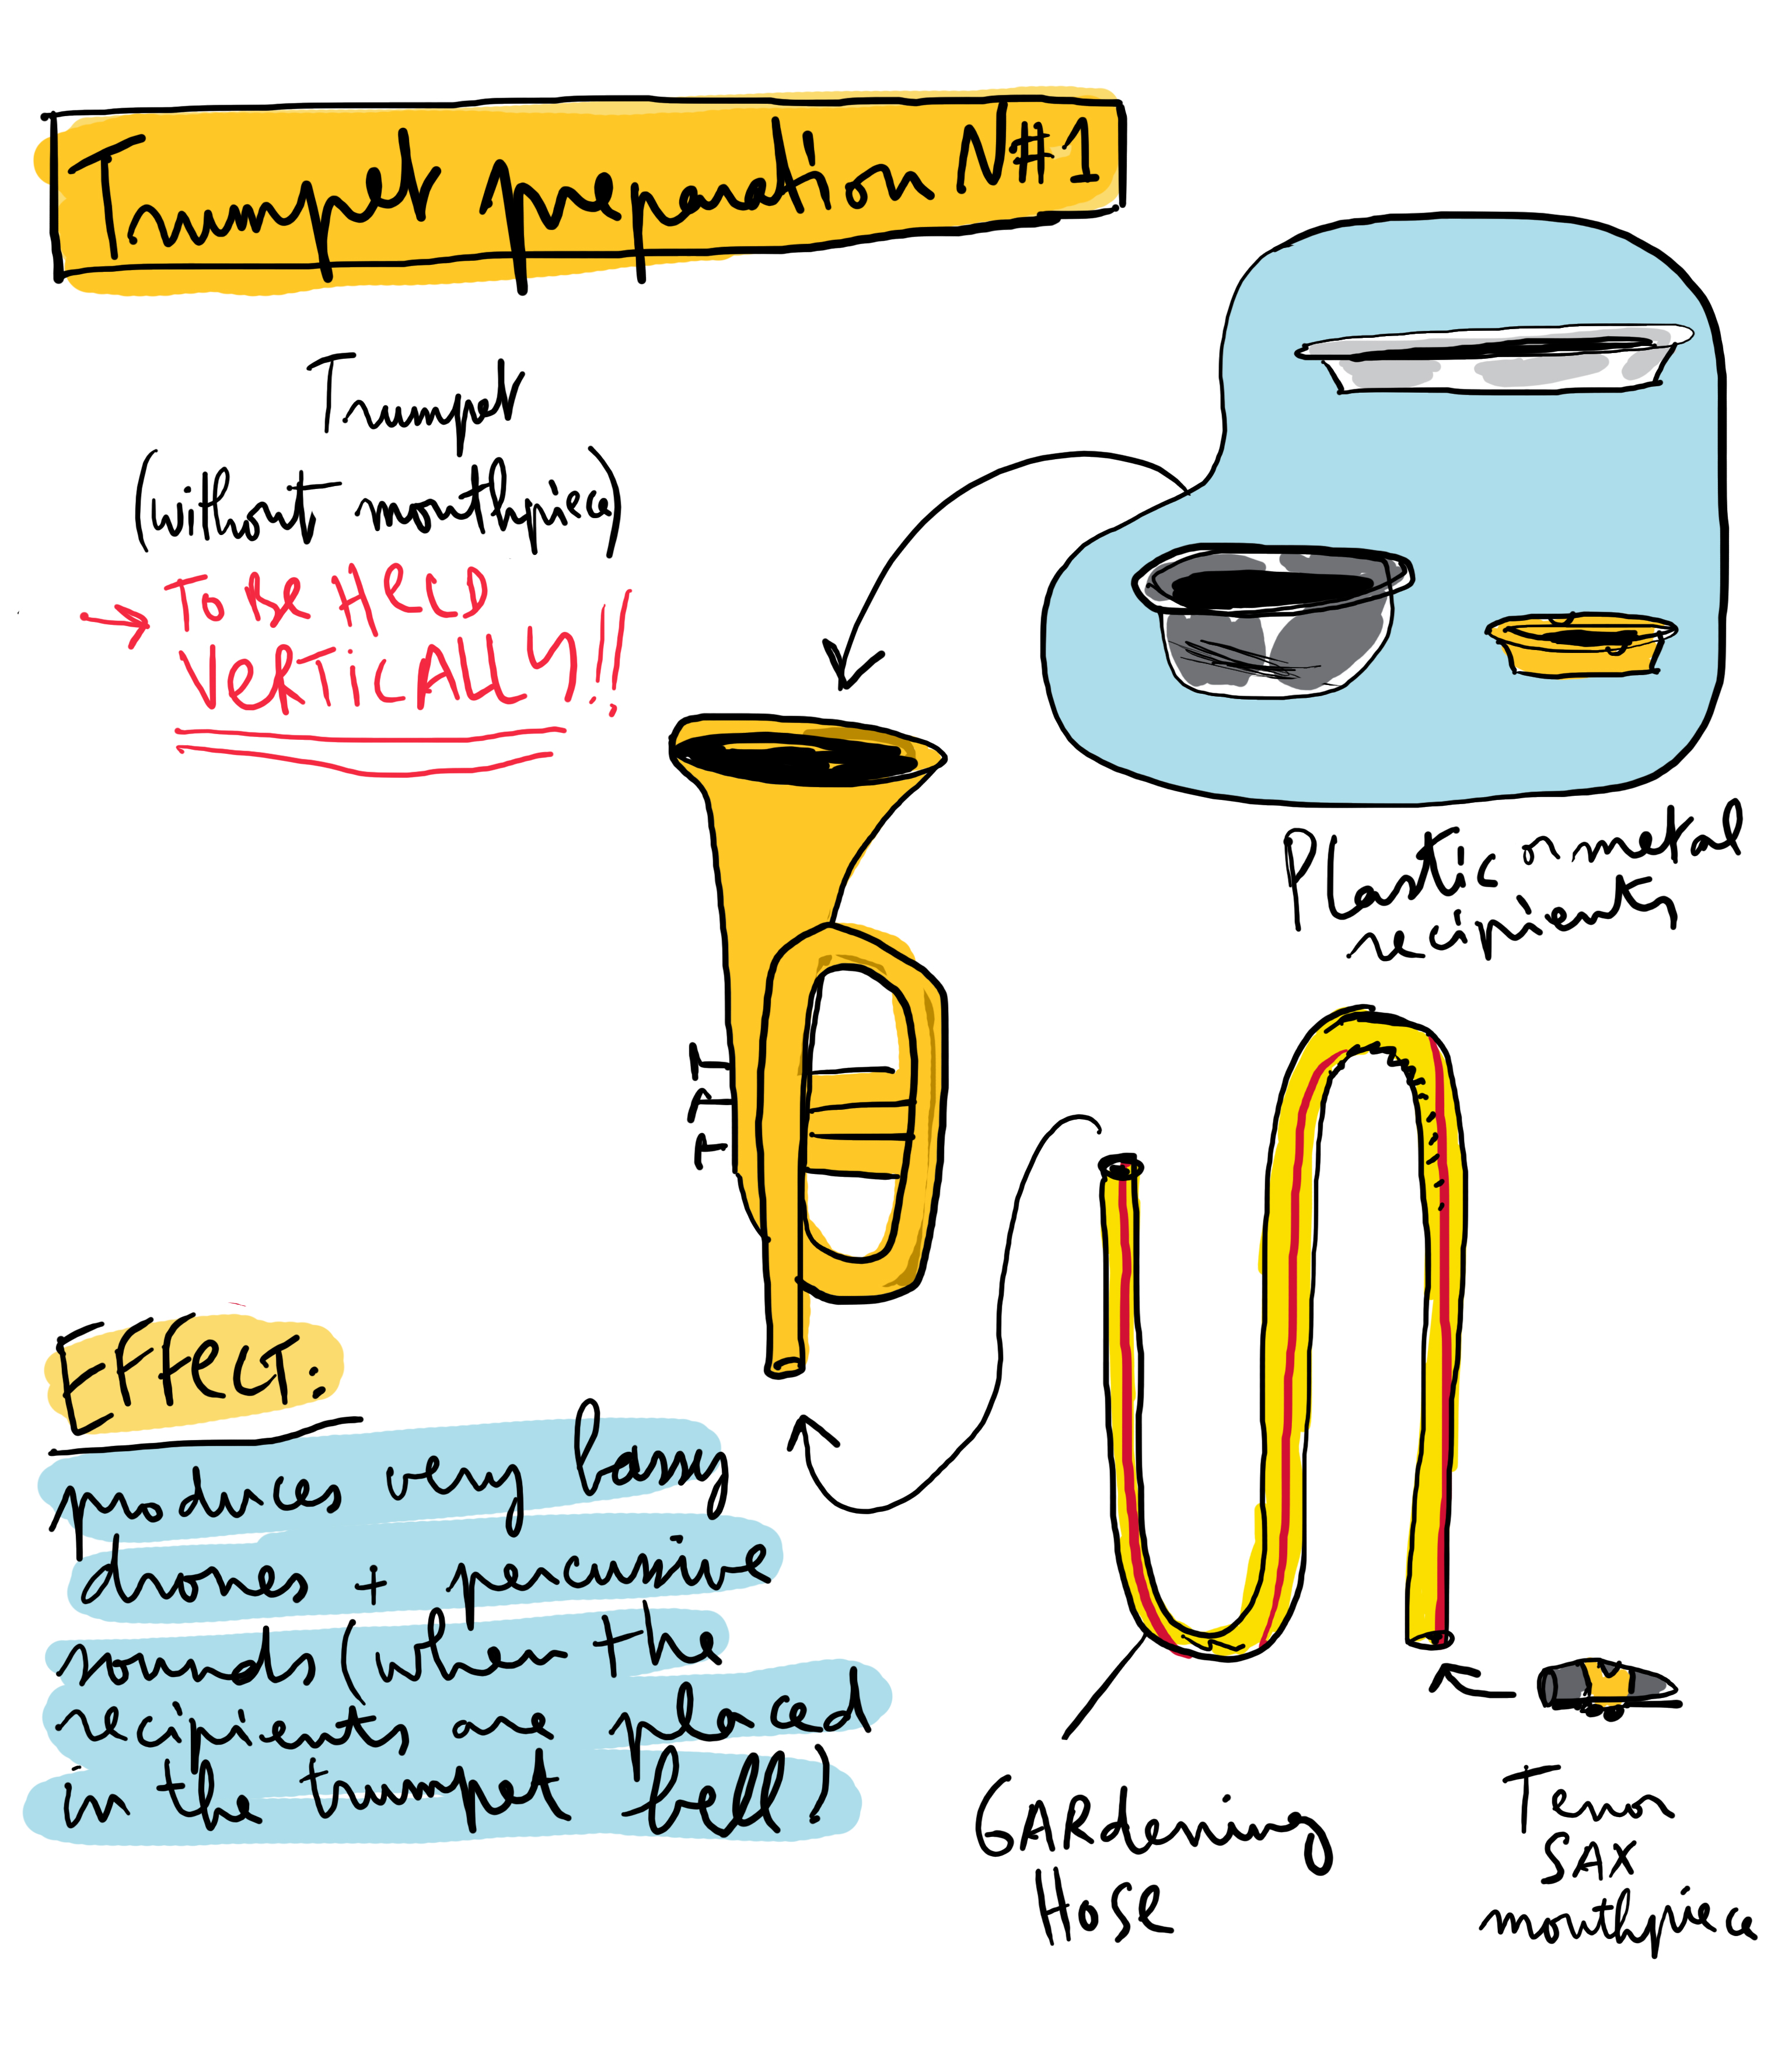 Trumpet preparation N#1
Trumpet
(without mouthpiece)
→ TO BE HELD
VERTICALLY!!
Plastic or metal
recipients
Effect:
produces very bassy
drones + percussive
sounds (when the
recipients are placed
in the trumpet bell)
GARdening
Hose
Tenor
SAX
mouthpiece